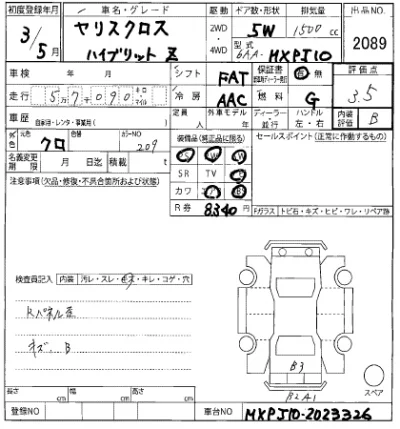 初度登録年月
車名・グレード
駆動
ギア数・形状
排気量
出品NO
3/5月
ヤリスクロス
ハイブリット Z
2WD
・
4WD
5W
1500 cc
型式
6AA- MXPJ10
2089
車検 年 月
シフト
FAT
保証書
有 無
評価点
3.5
走行
5万7090
キロ
マイル
冷房
AAC
燃料
G
車歴
自家用・レンタ・事業用 (
定員
人
外車モデル
年
ディーラー
並行
ハンドル
左・右
内装
評価
B
元色
クロ
色替
カラーNO
209
装備品 (純正品に限る)
セールスポイント (正常に作動するもの)
名義変更
期限
月 日迄
積載
t
SR
TV
カワ
注意事項 (欠品・修復・不具合箇所および状態)
R券
8340 円
Fガラス
トビ石・キズ・ヒビ・ワレ・リペア跡
検査員記入
内装
汚レ・スレ・キズ・キレ・コゲ・穴
B
B3
B2A1
スペア
長さ
cm
幅
cm
高さ
cm
登録NO
車台NO
MXPJ10-2023326